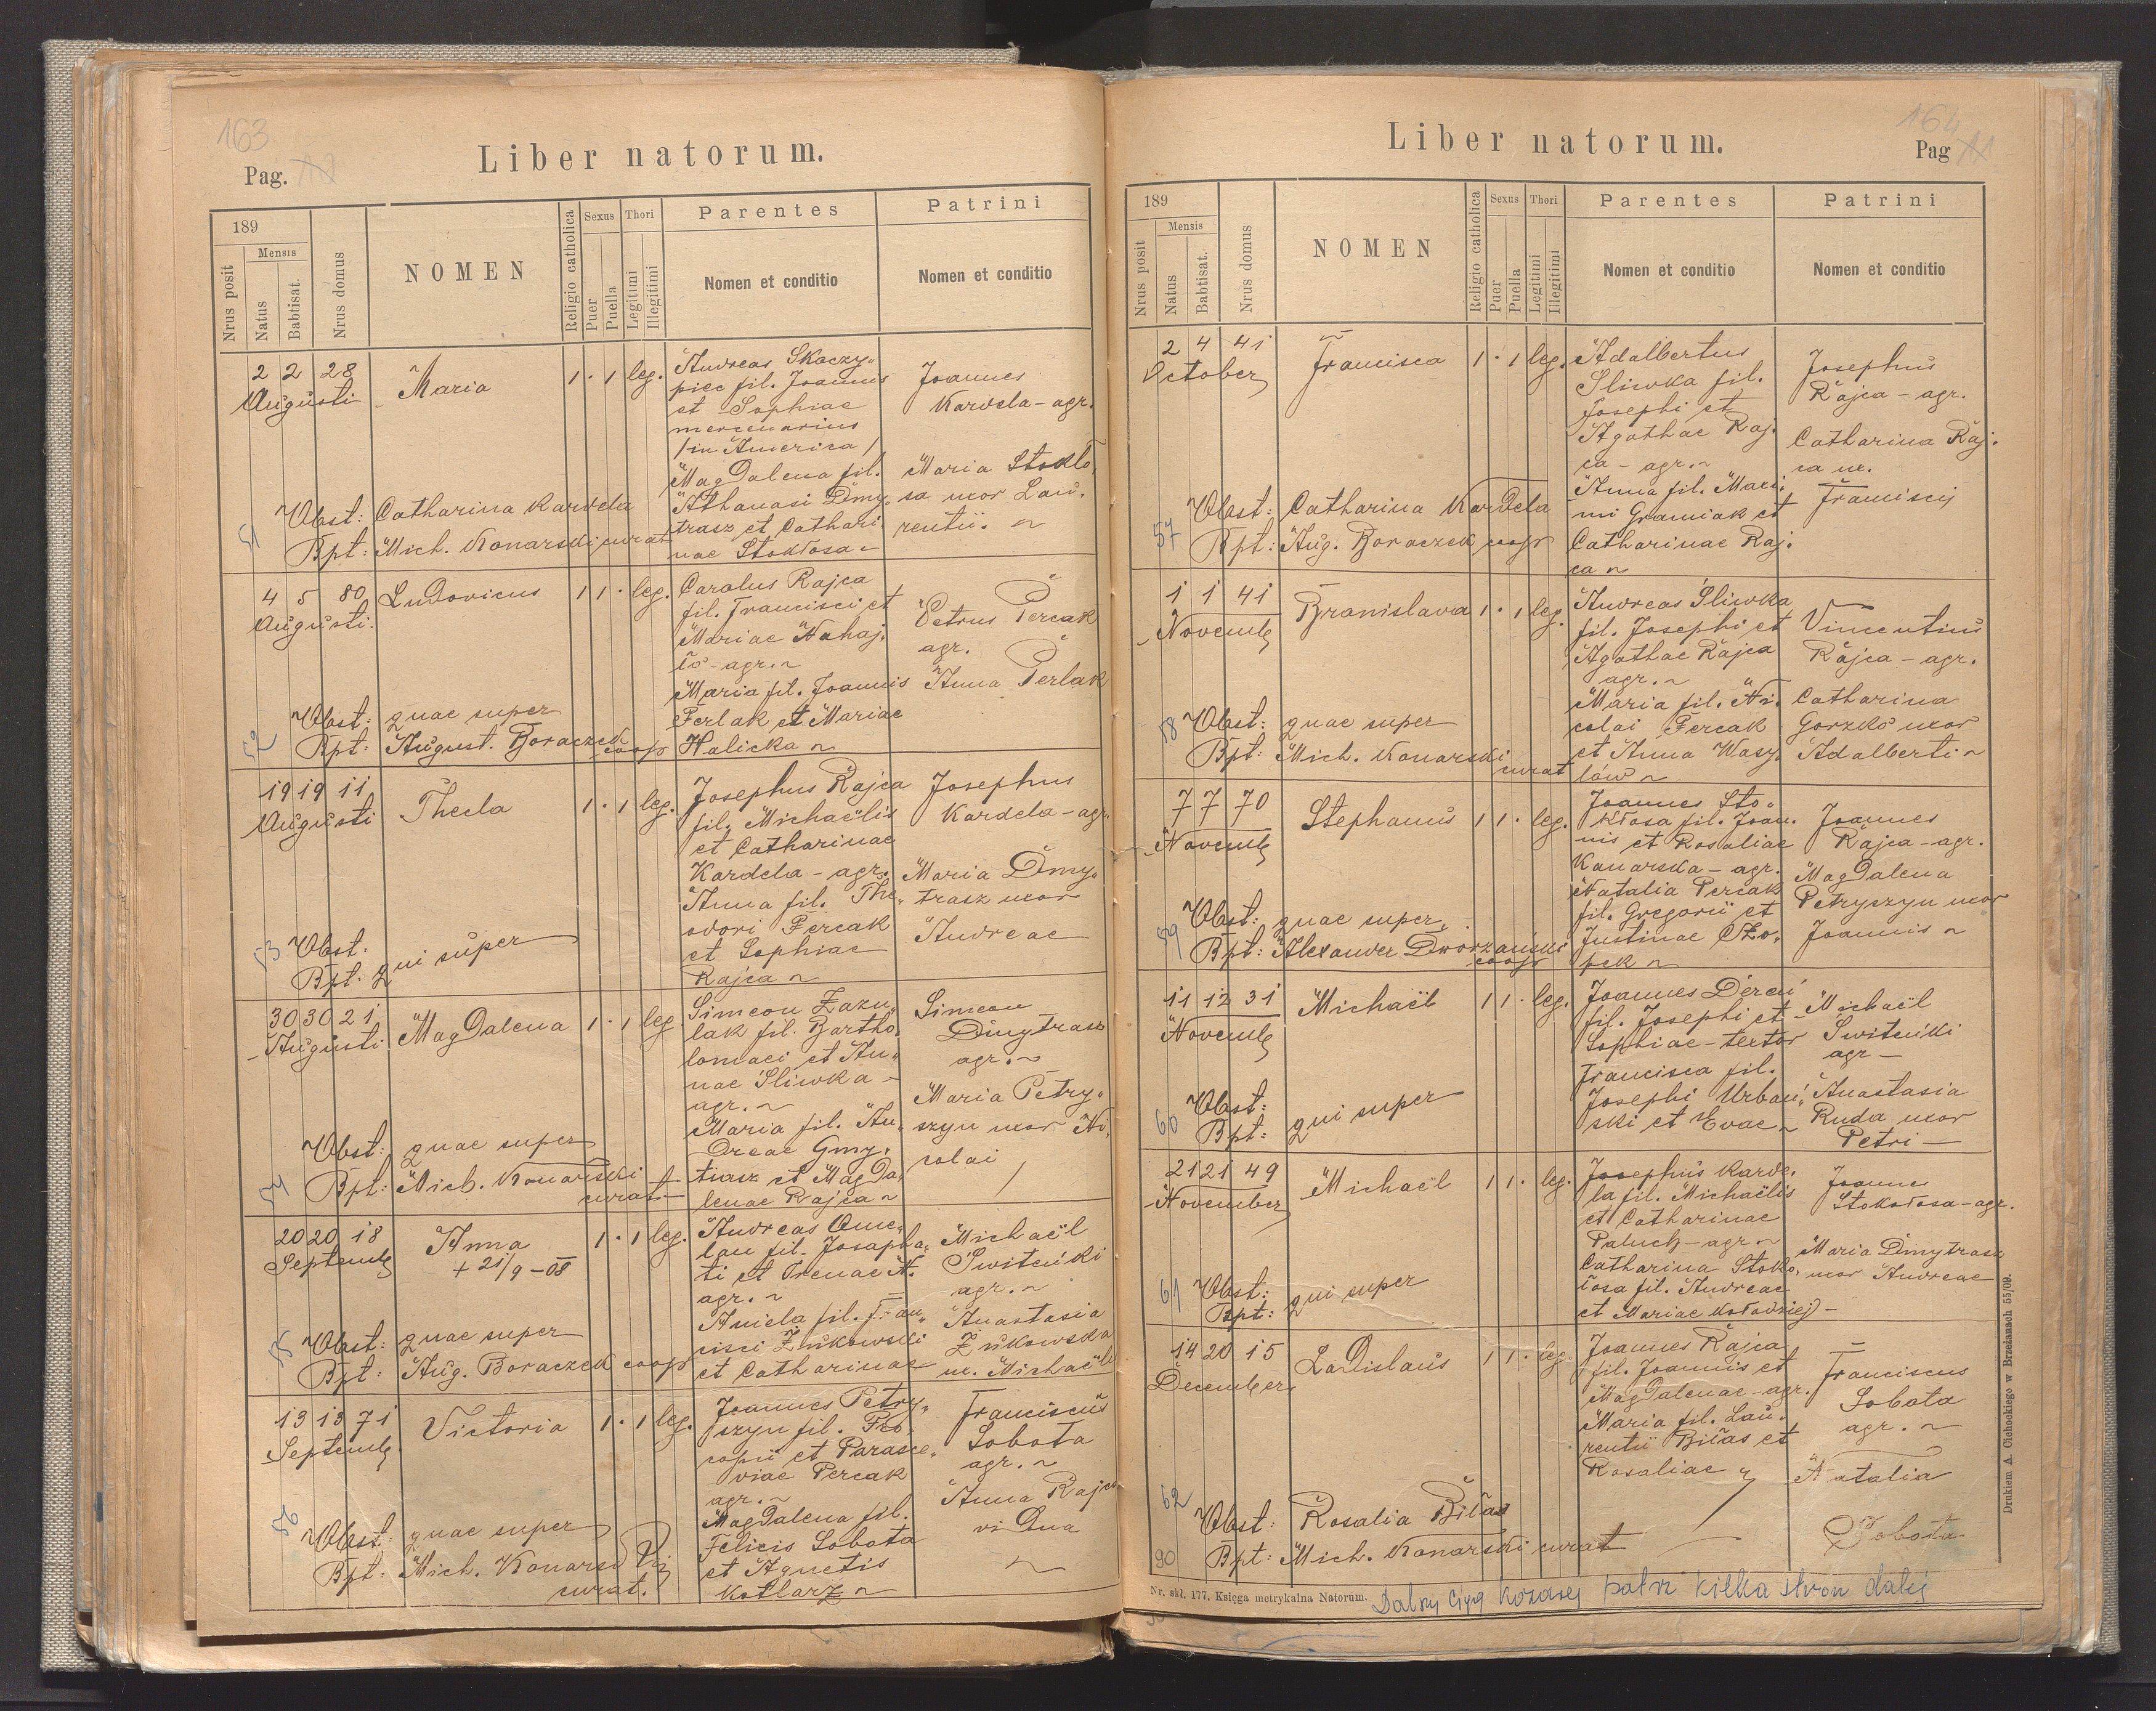 163
Pag.
Liber natorum.
189
Nrus posit
Mensis
Natus
Babtisat.
Nrus domus
NOMEN
Religio catholica
Sexus
Puer
Puella
Thori
Legitimi
Illegitimi
Parentes
Nomen et conditio
Patrini
Nomen et conditio
2 2 28
Augusti
Maria
1 · 1 leg.
Andreas Skoczy„
piec fil. Joannis
et Sophiae
mercenarius
/in America/
Magdalena fil.
Athanasi Dmy„
trasz et Cathari„
nae Stokłosa
Joannes
Kardela - agr.
Maria Stokło„
sa uxor Lau„
rentii.
51
Obst: Catharina Kardela
Bpt: Mich. Konarski curat
4 5 80
Augusti.
Ludovicus
1 1 · leg.
Carolus Rajca
fil. Francisci et
Mariae Nahaj„
ło - agr.
Maria fil. Joannis
Ferlak et Mariae
Halicka
Petrus Percak
agr.
Anna Perlak
52
Obst: quae super
Bpt: August. Boraczek coop
19 19 11
Augusti
Thecla
1 · 1 leg.
Josephus Rajca
fil. Michaëlis
et Catharinae
Kardela - agr.
Anna fil. The„
odori Percak
et Sophiae
Rajca
Josephus
Kardela - agr.
Maria Dmy„
trasz uxor
Andreae
53
Obst:
Bpt: qui super
30 30 21
Augusti
Magdalena
1 · 1 leg
Simeon Zazu„
lak fil. Bartho„
lomaei et An„
nae Śliwka -
agr.
Maria fil. An„
dreae Gmy„
trasz et Magda„
lenae Rajca
Simeon
Dmytrasz
agr.
Maria Petry„
szyn uxor Ni„
colai
54
Obst: quae super
Bpt: Mich. Konarski
curat
20 20 18
Septemb
Anna
+ 21/9 - 08
1 · 1 leg.
Andreas Ome„
lan fil. Josapha„
ti et Irenae N.
agr.
Aniela fil. Fran„
cisci Żukowski
et Catharinae
Michaël
Świteńki
agr.
Anastasia
Żukowska
ux. Michaëli
55
Obst: quae super
Bpt: Aug. Boraczek coop
13 13 71
Septemb.
Victoria
1 · 1 leg.
Joannes Petry„
szyn fil. Pro„
copii et Parasce„
viae Percak
agr.
Magdalena fil.
Felicis Sobota
et Agnetis
Kotlarz
Franciscus
Sobota
agr.
Anna Rajca
vidua
56
Obst: quae super
Bpt: Mich. Konarski
curat.
164
Pag
Liber natorum.
189
Nrus posit
Mensis
Natus
Babtisat.
Nrus domus
NOMEN
Religio catholica
Sexus
Puer
Puella
Thori
Legitimi
Illegitimi
Parentes
Nomen et conditio
Patrini
Nomen et conditio
2 4 41
October
Francisca
1 · 1 leg.
Adalbertus
Sliwka fil.
Josephi et
Agathae Raj„
ca - agr.
Anna fil. Maxi„
mi Graniak et
Catharinae Raj„
ca
Josephus
Rajca - agr.
Catharina Raj„
ca ux.
Francisci
57
Obst: Catharina Kardela
Bpt: Aug. Boraczek coop
1 1 41
Novemb
Bronislava
1 · 1 leg.
Andreas Śliwka
fil. Josephi et
Agathae Rajca
agr.
Maria fil. Ni„
colai Percak
et Anna Wasy„
lów
Vincentius
Rajca - agr.
Catharina
Gorzko uxor
Adalberti
58
Obst: quae super
Bpt: Mich. Konarski
curat
7 7 70
Novemb
Stephanus
1 1 · leg.
Joannes Sto„
kłosa fil. Joan„
nis et Rosaliae
Kanarska - agr.
Natalia Percak
fil. Gregorii et
Justinae Czo„
pek
Joannes
Rajca - agr.
Magdalena
Petryszyn uxor
Joannis
59
Obst: quae super
Bpt: Alexander Dworzański
coop
11 12 31
Novemb
Michaël
1 1 · leg.
Joannes Dereń
fil. Josephi et
Sophiae - textor
Francisca fil.
Josephi Urbań„
ski et Evae
Michaël
Świteńki
agr -
Anastasia
Ruda uxor
Petri -
60
Obst:
Bpt: qui super
21 21 49
November
Michaël
1 1 · leg.
Josephus Karde„
la fil. Michaëlis
et Catharinae
Paluch - agr
Catharina Stok„
łosa fil. Andreae
et Mariae Kołodziej -
Joannes
Stokołosa - agr.
Maria Dmytrasz
uxor Andreae
61
Obst:
Bpt: qui super
14 20 15
December
Ladislaus
1 1 · leg.
Joannes Rajca
fil. Joannis et
Magdalenae - agr.
Maria fil. Lau„
rentii Biłas et
Rosaliae
Franciscus
Sobota
agr.
Natalia
Sobota
62
Obst: Rosalia Biłas
90
Bpt: Mich. Konarski curat
Nr. skł. 177. Księga metrykalna Natorum.
patrz kilka stron dalej
Drukiem A. Cichockiego w Brzeżanach 55/09.